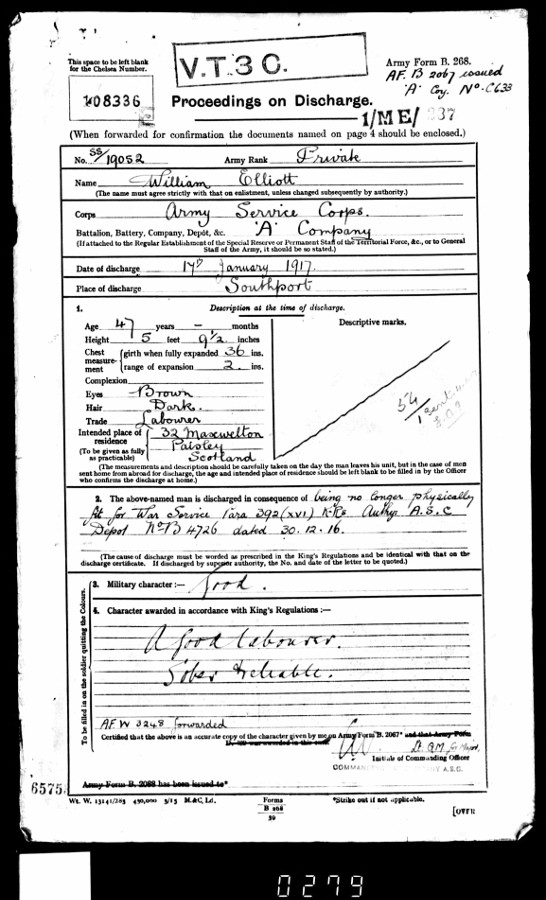 This space to be left blank
for the Chelsea Number.
V.T.3 C.
Army Form B. 268.
A.F. B 2067 issued
'A' Coy. No. C633
108336
Proceedings on Discharge.
1/ME/ 337
(When forwarded for confirmation the documents named on page 4 should be enclosed.)
No. SS/19052 Army Rank Private
Name William Elliott
(The name must agree strictly with that on enlistment, unless changed subsequently by authority.)
Corps Army Service Corps.
Battalion, Battery, Company, Depôt, &c. 'A' Company
(If attached to the Regular Establishment of the Special Reserve or Permanent Staff of the Territorial Force, &c., or to General
Staff of the Army, it should be so stated.)
Date of discharge January 1917.
Place of discharge Southport
1. Description at the time of discharge.
Age 47 years – months
Height 5 feet 9½ inches
Chest measure-ment
girth when fully expanded 36 ins.
range of expansion 2. ins.
Complexion
Eyes Brown
Hair Dark.
Trade Labourer
Intended place of residence
(To be given as fully as practicable)
32 Maxwelton
Paisley
Scotland
Descriptive marks.
54/1
(The measurements and description should be carefully taken on the day the man leaves his unit, but in the case of men
sent home from abroad for discharge, the age and intended place of residence should be left blank to be filled in by the Officer
who confirms the discharge at home.)
2. The above-named man is discharged in consequence of being no longer physically
fit for War Service Para 392 (XVI) K.R's Authy. A.S.C
Depot No B 4726 dated 30.12.16.
(The cause of discharge must be worded as prescribed in the King's Regulations and be identical with that on the
discharge certificate. If discharged by superior authority, the No. and date of the letter to be quoted.)
To be filled in on the soldier quitting the Colours.
3. Military character:— Good.
4. Character awarded in accordance with King's Regulations:—
A good labourer.
Sober & reliable.
A.F.W 3248 forwarded
Certified that the above is an accurate copy of the character given by me on Army Form B. 2067* and that Army Form
Lt. QM. for Major.
Initials of Commanding Officer
A.S.C.
Army Form B. 2088 has been issued to*
6575
Wt. W. 13141/285 450,000 5/15 M.&C, Ld. Forms
B 268
39
*Strike out if not applicable.
[OVER
0279